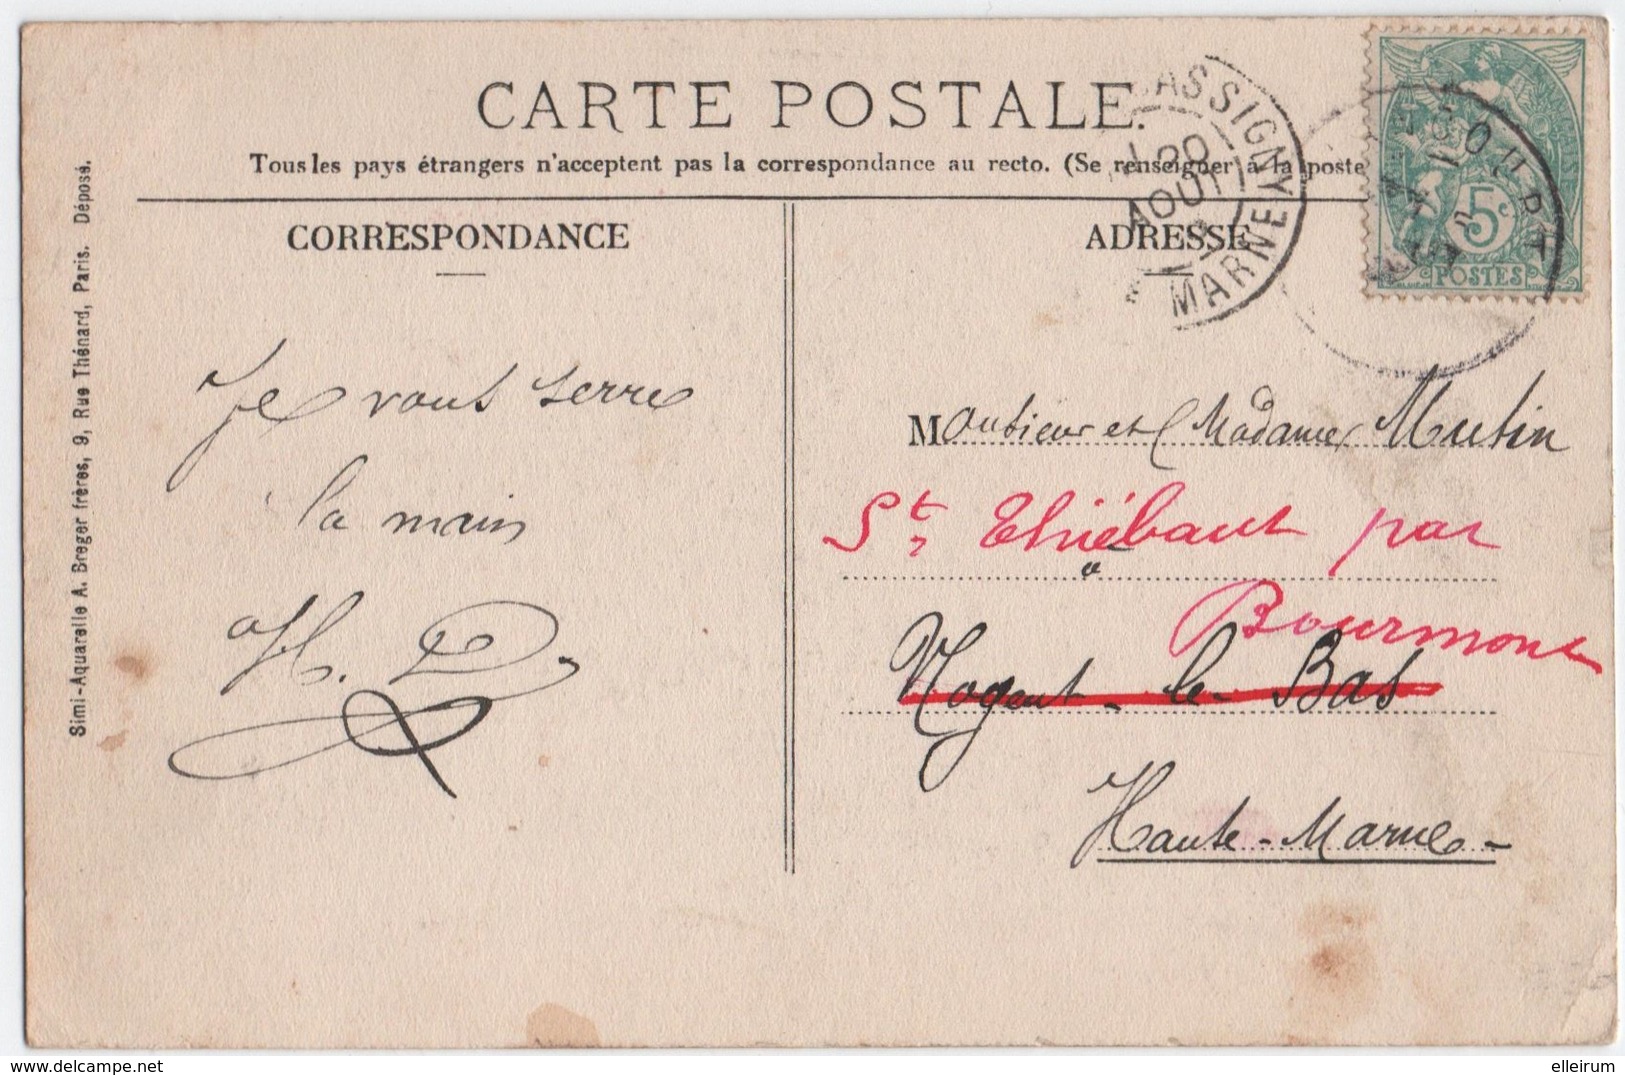 CARTE POSTALE.
Tous les pays étrangers n'acceptent pas la correspondance au recto. (Se renseigner à la poste
CORRESPONDANCE
ADRESSE
Simi-Aquarelle A. Breger frères, 9, Rue Thénard, Paris. Déposé.
Je vous serre
la main
H. D.
Monsieur et Madame Mutin
St Thiébaut par
à
Bourmont
Nogent-le-Bas
Haute-Marne-
ASSIGNY
20
AOUT
MARNE
5c
POSTES
delcampe.net
elleirum